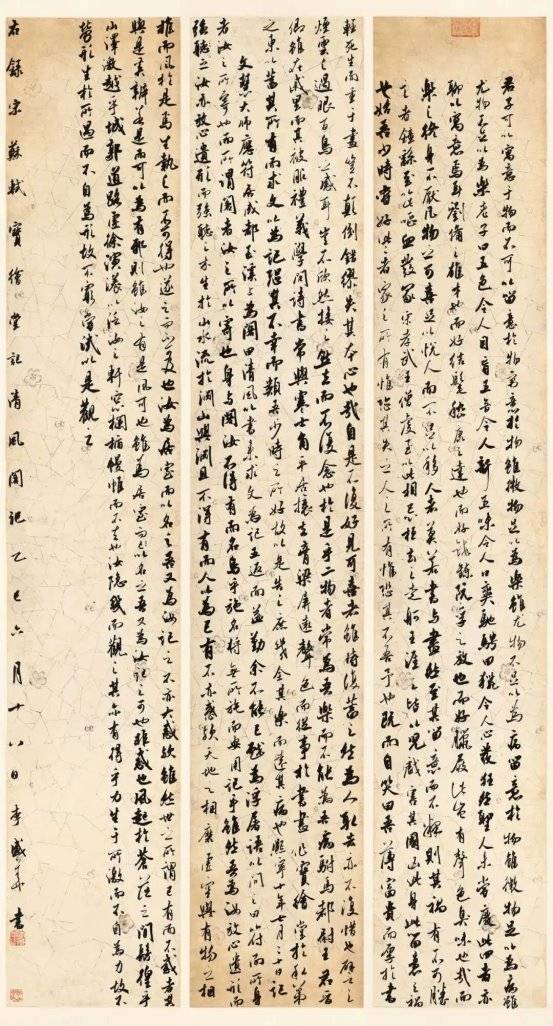 君子可以寓意于物而不可以留意於物寓意於物雖微物足以為樂雖尤物不足以為病留意於物雖微物足以為病雖
尤物不足以為樂老子曰五色令人目盲五音令人耳聾五味令人口爽馳騁田獵令人心發狂然聖人未嘗廢此四者亦
聊以寓意焉耳劉備之雄才也而好結髦嵇康之達也而好鍛鍊阮孚之放也而好蠟屐此豈有聲色臭味也哉而
樂之終身不厭凡物之可喜足以悅人而不足以移人者莫若書與畫然至其留意而不釋則其禍有不可勝
言者鍾繇至以此嘔血發冢宋孝武王僧虔至以此相忌桓玄之走舸王涯之複壁皆以兒戲害其國凶此身此留意之禍
也始吾少時嘗好此二者家之所有惟恐其失之人之所有惟恐其不吾予也既而自笑曰吾薄富貴而厚於書
輕死生而重於畫豈不顛倒錯繆失其本心也哉自是不復好見可喜者雖時復蓄之然為人取去亦不復惜也譬之
煙雲之過眼百鳥之感耳豈不欣然接之然去而不復念也於是乎二物者常為吾樂而不能為吾病駙馬都尉王君晉
卿雖在戚里而其被服禮義學問詩書常與寒士角平居攘去膏粱屏遠聲色而從事於書畫作寶繪堂於私第
之東以蓄其所有而求文以為記恐其不幸而類吾少時之所好故以是告之庶幾全其樂而遠其病也熙寧十年七月二十日記
文慧大師應符居成都玉溪上為閣曰清風以書來求文為記五返而益勤余不能已戲為浮屠語以問之曰符而所身
者汝之所寄也而所謂閣者汝之所以寄也身與閣汝不得有而名烏乎施名將無所施而安用記乎雖然吾為汝放心遺形而
強言之汝亦放心遺形而強聽之木生於山水流於淵山與淵且不得有而人以為己有不亦惑歟天地之相磨虛空與有物之相
推而風於是焉生執之而不可得也逐之而不可及也汝為居室而以名之吾又為汝記之不亦大惑歟雖然世之所謂己有而不惑者其
與是奚辨若是而可以為有邪則雖汝之有是風可也雖為居室而以名之吾又為汝記之可也非惑也風起於蒼茫之間彷徨乎
山澤激越乎城郭道路虛徐演漾以汎汝之軒窗欄楯幔帷而不去也汝隱几而觀之其亦有得乎力生于所激而不自為力故不
勞形生於所遇而不自為形故不窮嘗試以是觀之
右錄宋蘇軾寶繪堂記清風閣記乙巳六月十八日李盛華書